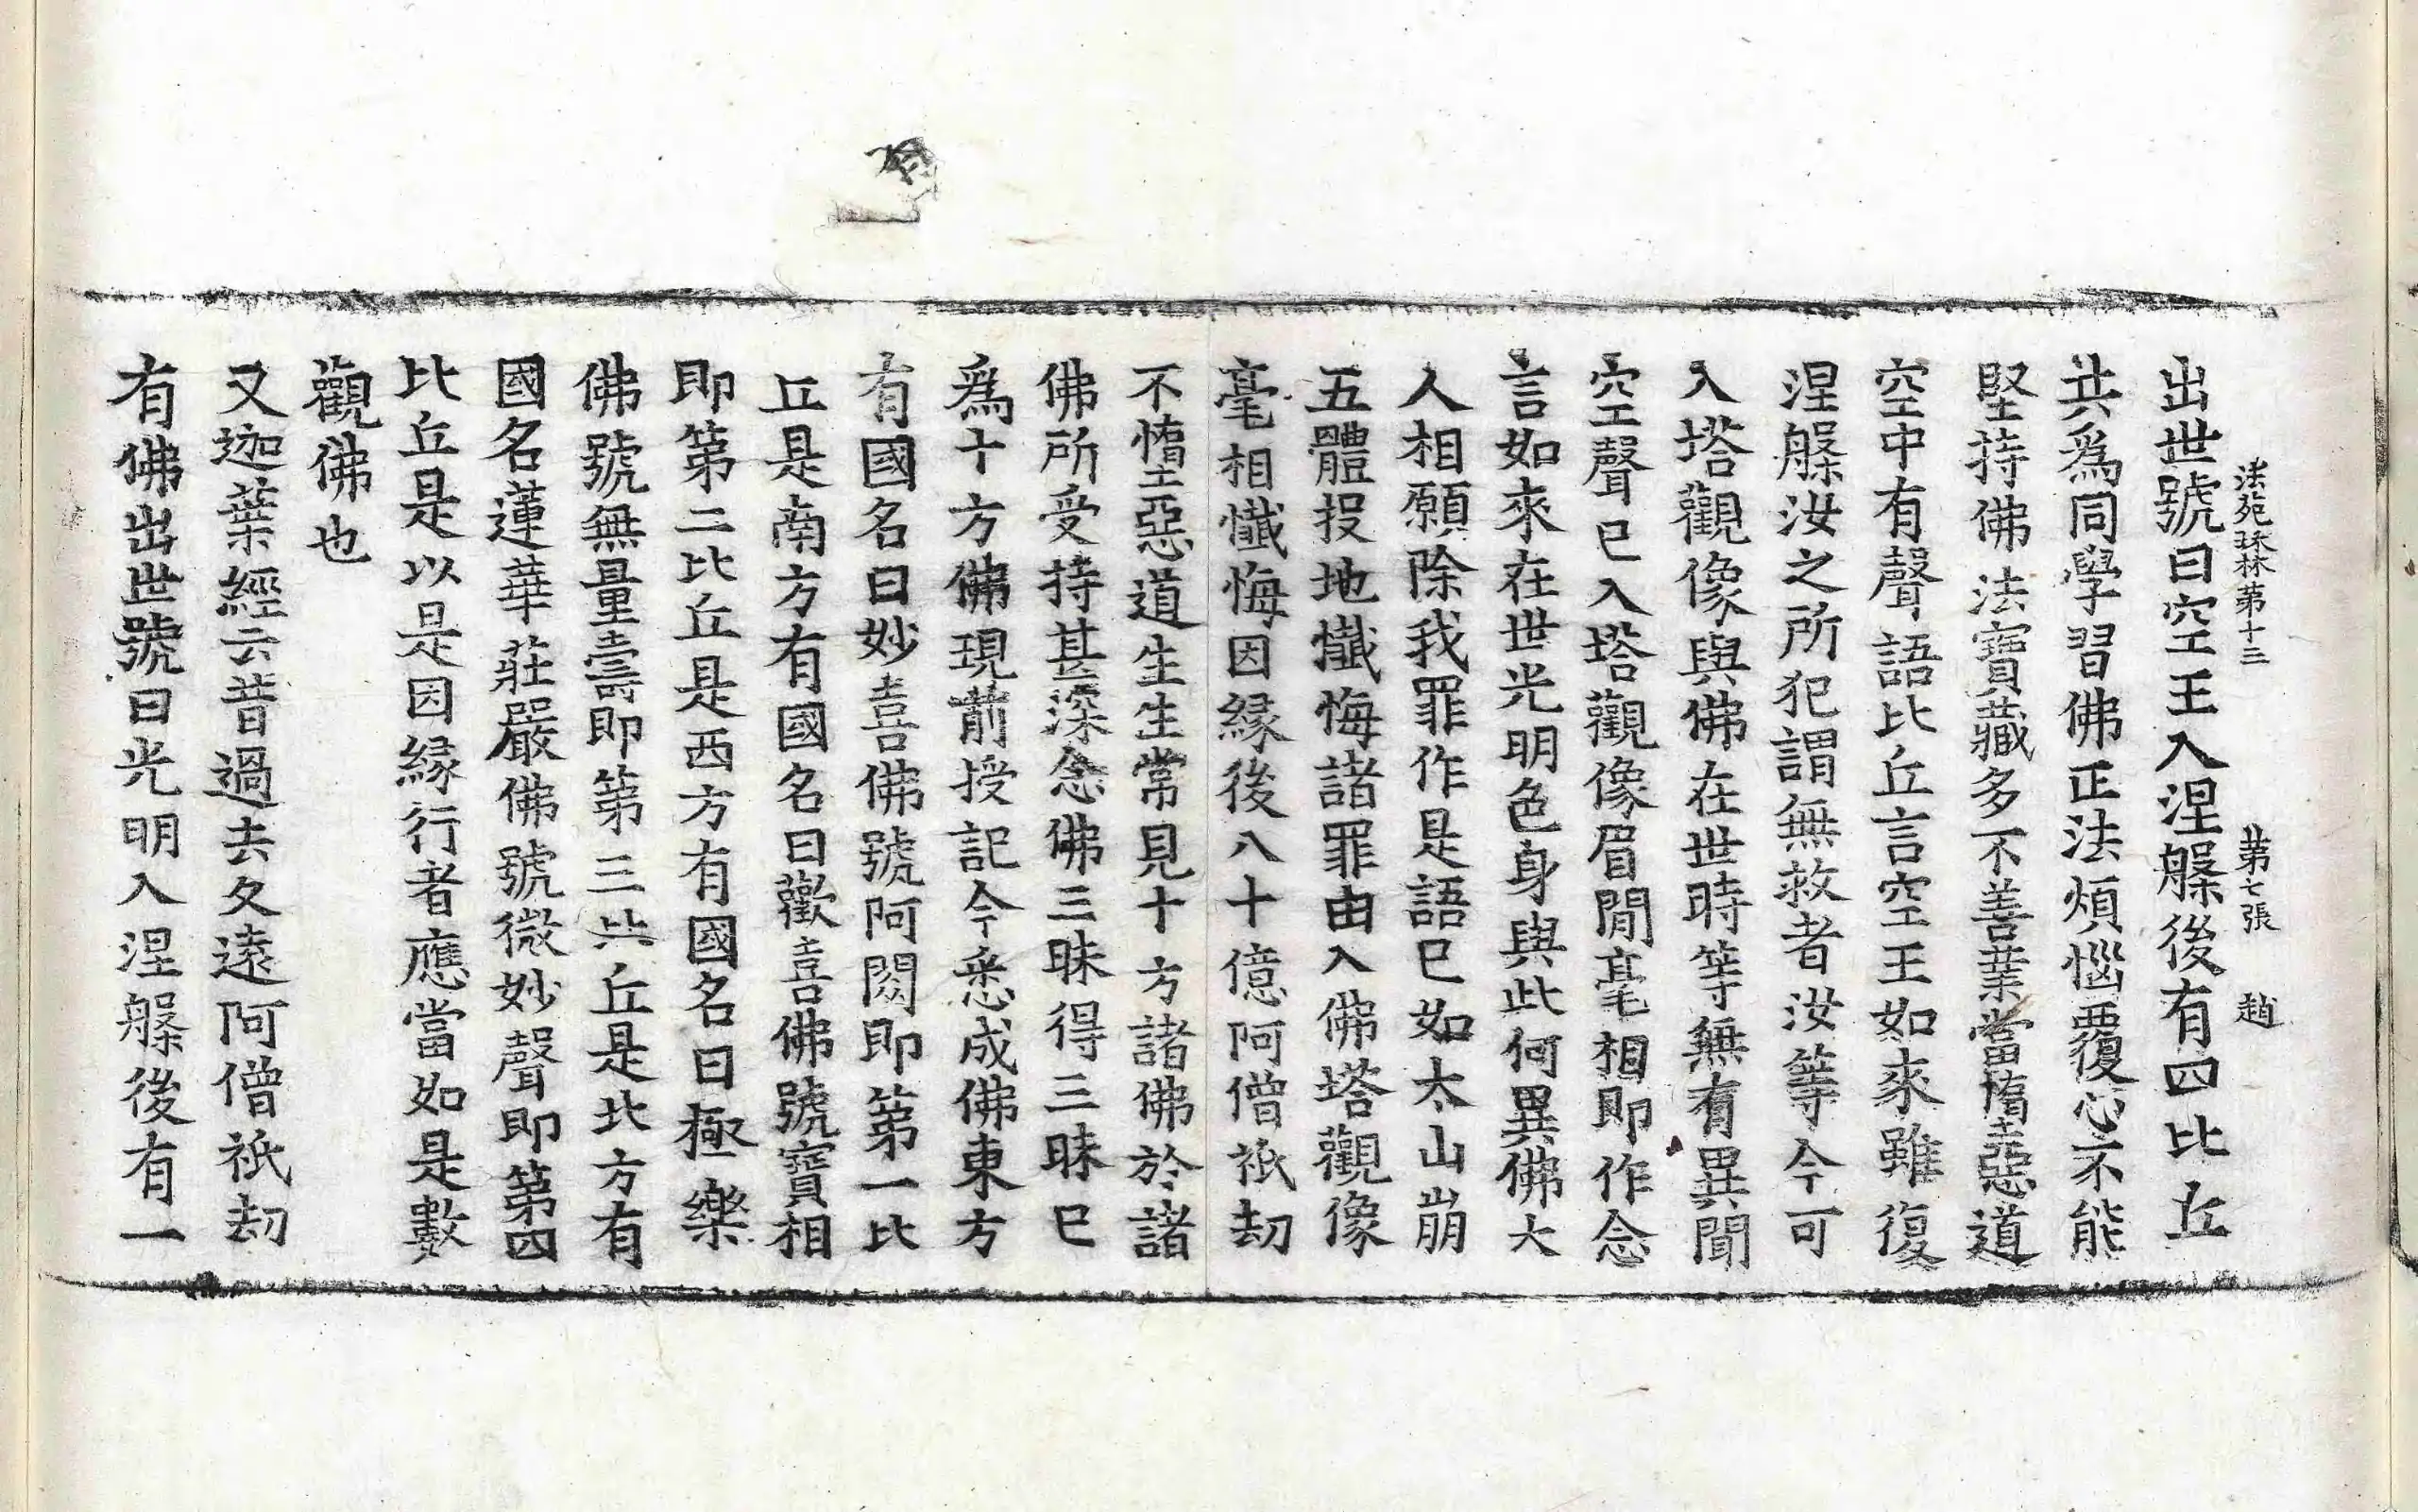 法苑珠林第十三 第七張 趙
出世號曰空王入涅槃後有四比丘
共爲同學習佛正法煩惱覆心不能
堅持佛法寶藏多不善業當墮惡道
空中有聲語比丘言空王如來雖復
涅槃汝之所犯謂無救者汝等今可
入塔觀像與佛在世時等無有異聞
空聲已入塔觀像眉閒毫相即作念
言如來在世光明色身與此何異佛大
人相願除我罪作是語已如太山崩
五體投地懺悔諸罪由入佛塔觀像
毫相懺悔因緣後八十億阿僧祇劫
不墮惡道生生常見十方諸佛於諸
佛所受持甚深念佛三昧得三昧已
爲十方佛現前授記今悉成佛東方
有國名曰妙喜佛號阿閦即第一比
丘是南方有國名曰歡喜佛號寶相
即第二比丘是西方有國名曰極樂
佛號無量壽即第三比丘是北方有
國名蓮華莊嚴佛號微妙聲即第四
比丘是以是因緣行者應當如是數
觀佛也
又迦葉經云昔過去久遠阿僧祇劫
有佛出世號曰光明入涅槃後有一